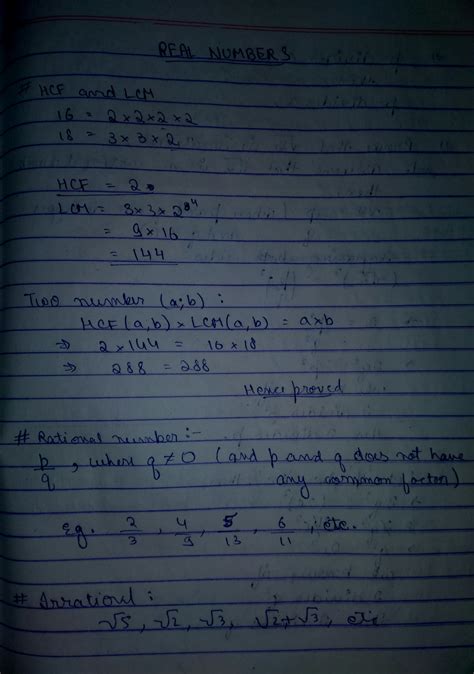 REAL NUMBERS
# HCF and LCM
16 = 2×2×2×2
18 = 3×3×2
HCF = 2
LCM = 3×3×2⁴
= 9×16
= 144
Two number (a,b) :
HCF(a,b) × LCM(a,b) = a×b
⇒ 2×144 = 16×18
⇒ 288 = 288
Hence proved
# Rational number :-
p/q , where q ≠ 0 (and p and q does not have
any common factor)
Eg. 2/3 , 4/9 , 5/13 , 6/11 , etc.
# Irrational :
√5 , √2 , √3 , √2+√3 , etc